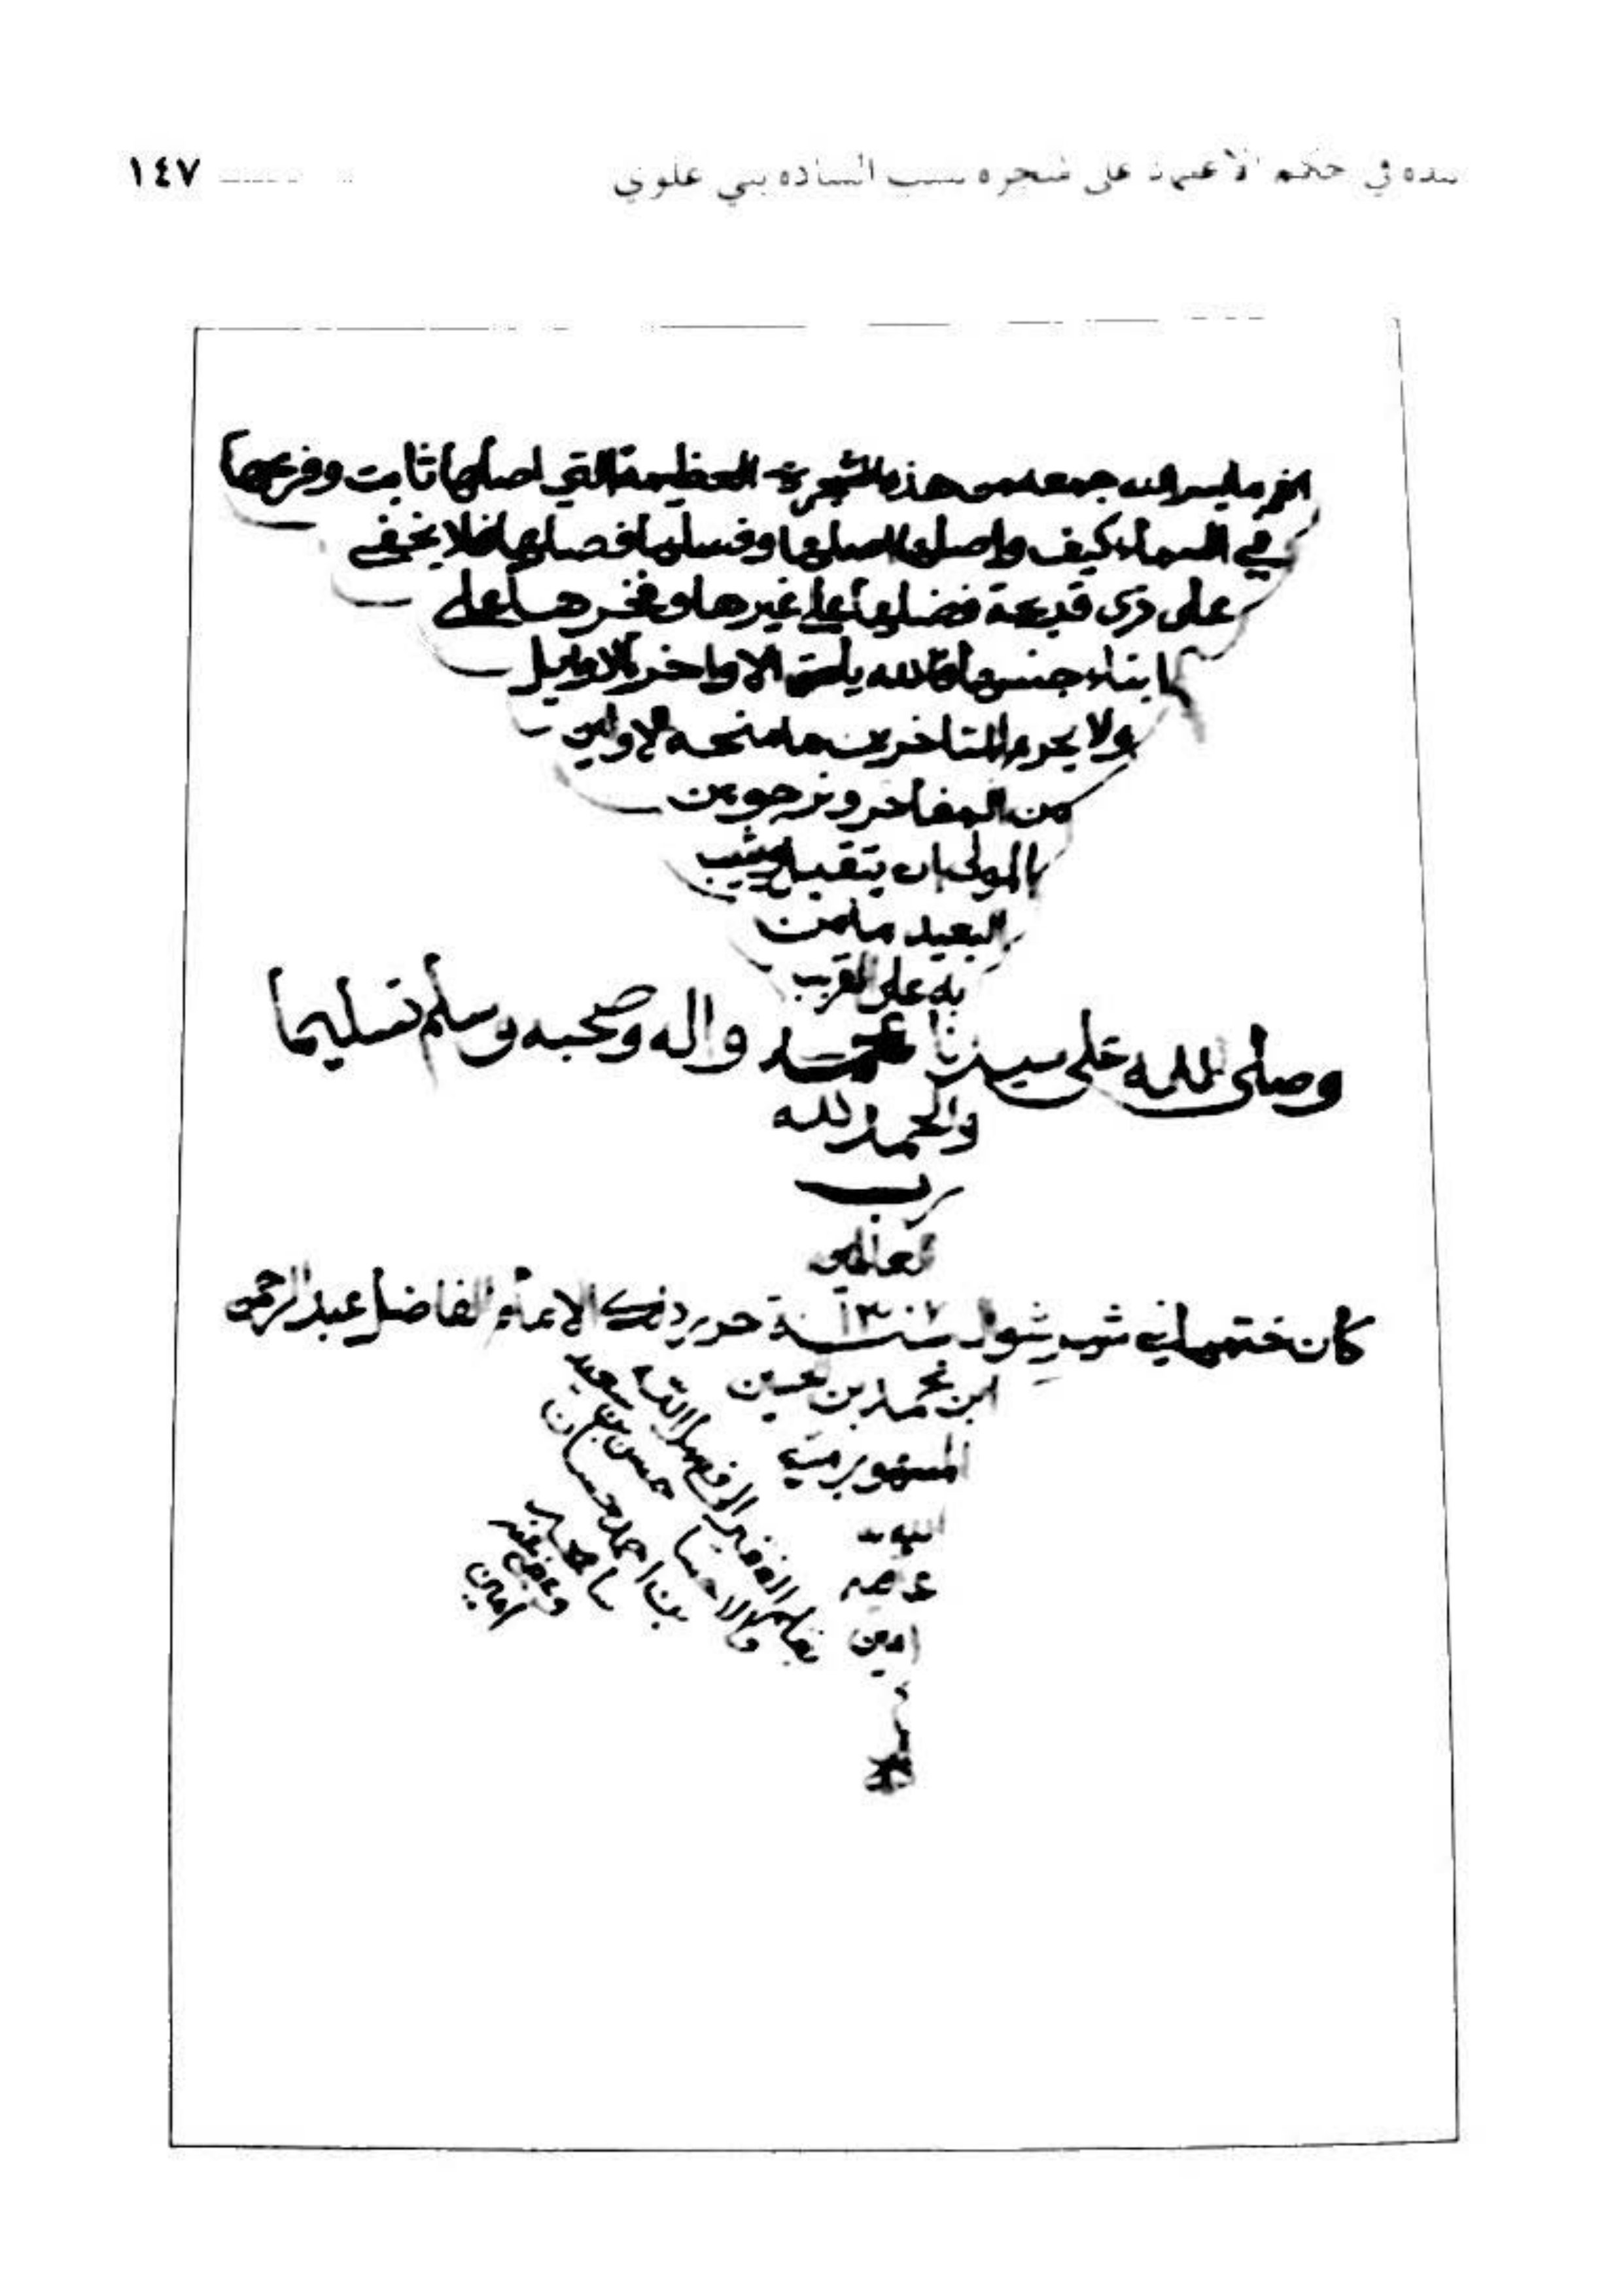 نبذة في حكم الاعتماد على شجرة نسب السادة بني علوي ١٤٧
اخر ما يسر الله جمعه من هذه الشجرة العظيمة التي اصلها ثابت وفرعها
في السماء كيف واصلها اصلها وفصلها فصلها فلا يخفى
على ذي قريحة فضلها على غيرها وفخرها على
ابناء جنسها فالله يلحق الاواخر بالاوايل
ولا يحرم المتاخرين ما منحه الاولين
من المفاخر ونرجو من
المولى ان يتقبل ويثيب
البعيد ما من
به على القريب
وصلى الله على سيدنا محمد واله وصحبه وسلم تسليما
والحمد لله
رب
العالمين
كان ختمها في شهر شوال سنة ١٣٠٧ حرر ذلك الامام الفاضل عبدالرحمن
ابن محمد بن حسين
المشهور
عنه
امين
بقلم الفقير الى فضل الله
والاحسان حسن بن سعيد
بن احمد حسان
وعفى عنه
امين